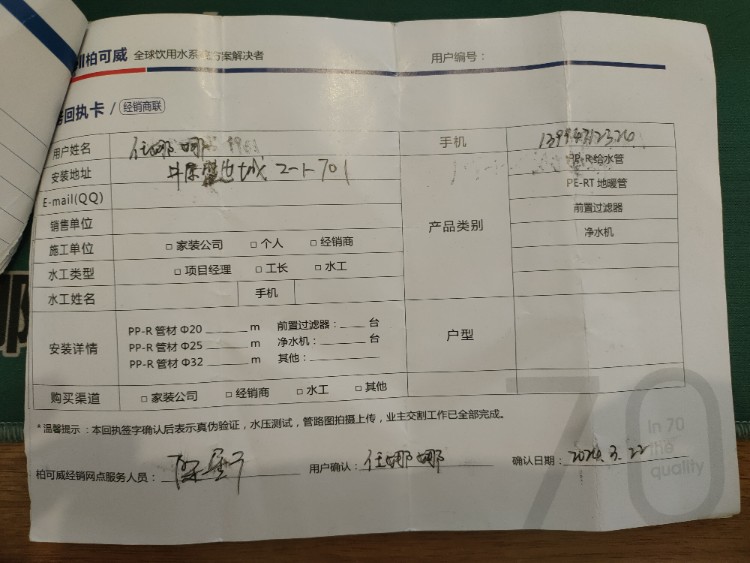 柏可威 全球饮用水系统方案解决者 用户编号：
回执卡 / 经销商联
用户姓名 任娜娜 手机
安装地址 2-1-701 产品类别 PP-R 给水管
E-mail(QQ) PE-RT 地暖管
销售单位 前置过滤器
施工单位 □ 家装公司 □ 个人 □ 经销商 净水机
水工类型 □ 项目经理 □ 工长 □ 水工
水工姓名 手机
安装详情 户型
PP-R 管材 Φ20 m 前置过滤器： 台
PP-R 管材 Φ25 m 净水机： 台
PP-R 管材 Φ32 m 其他：
购买渠道 □ 家装公司 □ 经销商 □ 水工 □ 其他
* 温馨提示：本回执签字确认后表示真伪验证，水压测试，管路图拍摄上传，业主交割工作已全部完成。
柏可威经销网点服务人员： 用户确认：任娜娜 确认日期：2024.3.22
70
in 70
the
quality